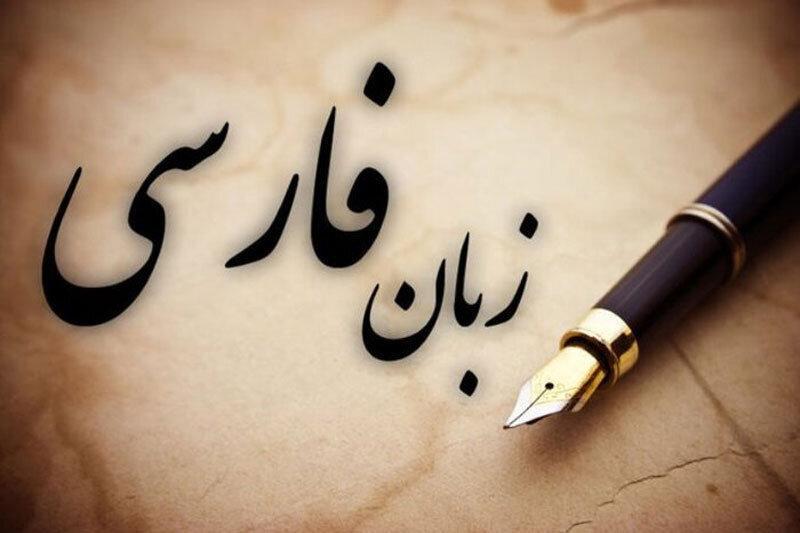 زبان فارسی